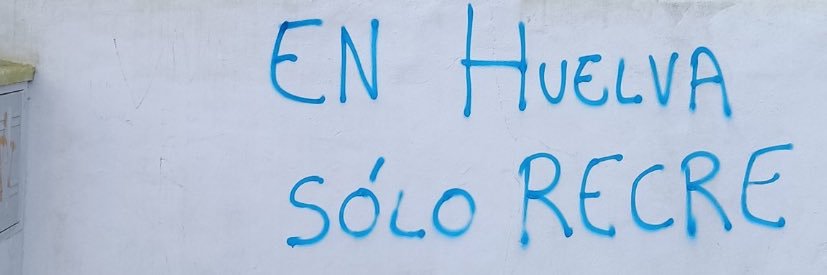 EN HUELVA
SÓLO RECRE